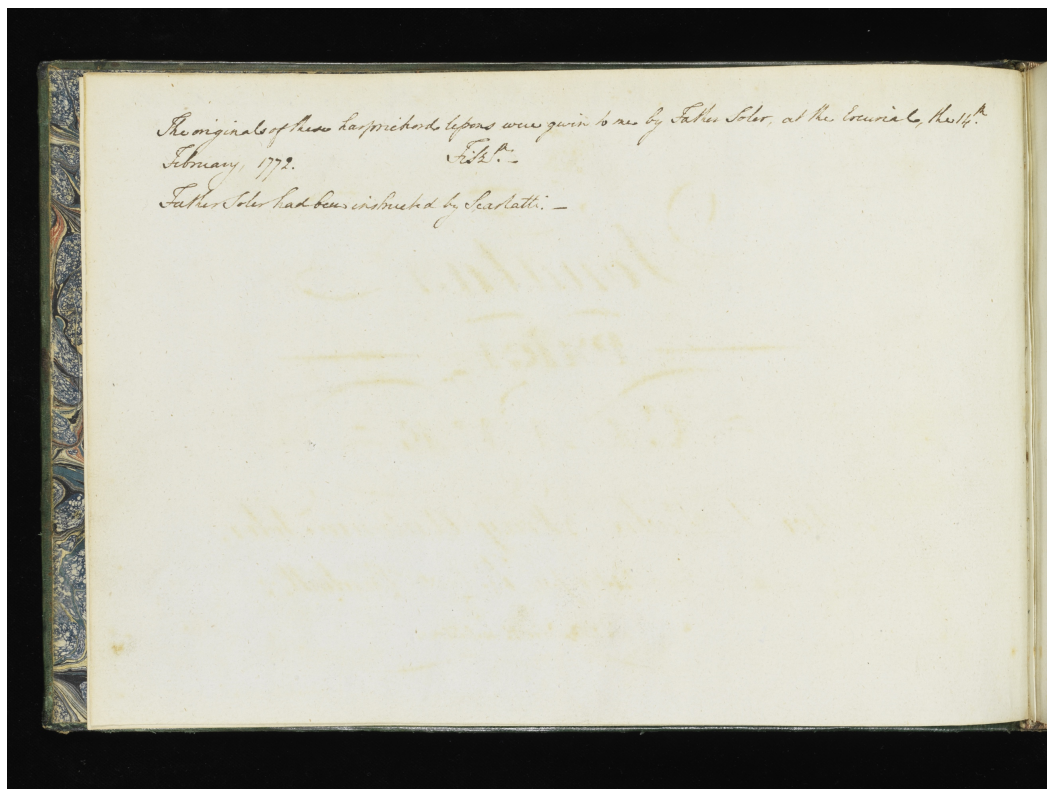 The originals of these harpsichord lessons were given to me by Father Soler, at the Escurial, the 14th
February, 1772. Fitzm. —
Father Soler had been instructed by Scarlatti. —